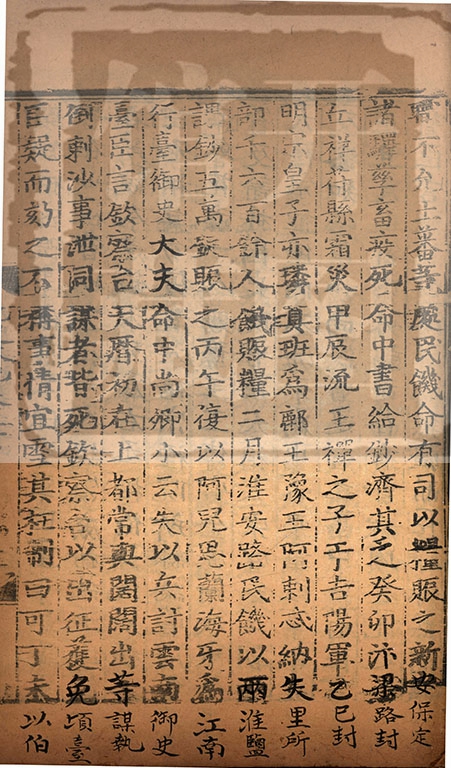 豐不允土蕃等處民饑命有司以粮賑之新安保定
諸驛孳畜疫死命中書給鈔濟其乏癸卯汴梁路封
丘祥符縣霜災甲辰流王禪之子于吉陽軍乙巳封
明宗皇子亦璘真班爲鄜王豫王阿剌忒納失里所
部千六百餘人饑賑糧二月淮安路民饑以兩淮鹽
課鈔五萬錠賑之丙午復以阿兒思蘭海牙爲江南
行臺御史大夫命中尚卿小云失以兵討雲南御史
臺臣言欽察台天曆初在上都常與闊闊出等謀執
倒剌沙事泄同謀者皆死欽察台以出征獲免頃臺
臣疑而劾之不稱事情宜雪其枉制曰可丁未以伯